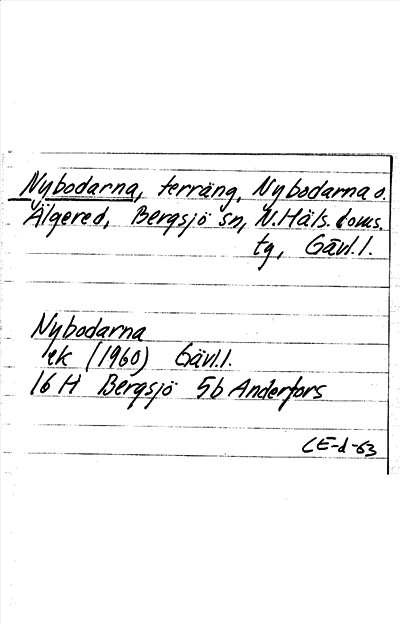 Nybodarna, terräng, Nybodarna o.
Älgered, Bergsjö sn, N. Häls. doms.
tg, Gävl. l.
Nybodarna
ek (1960) Gävl. l.
16 H Bergsjö 5b Anderfors
CE-d-63